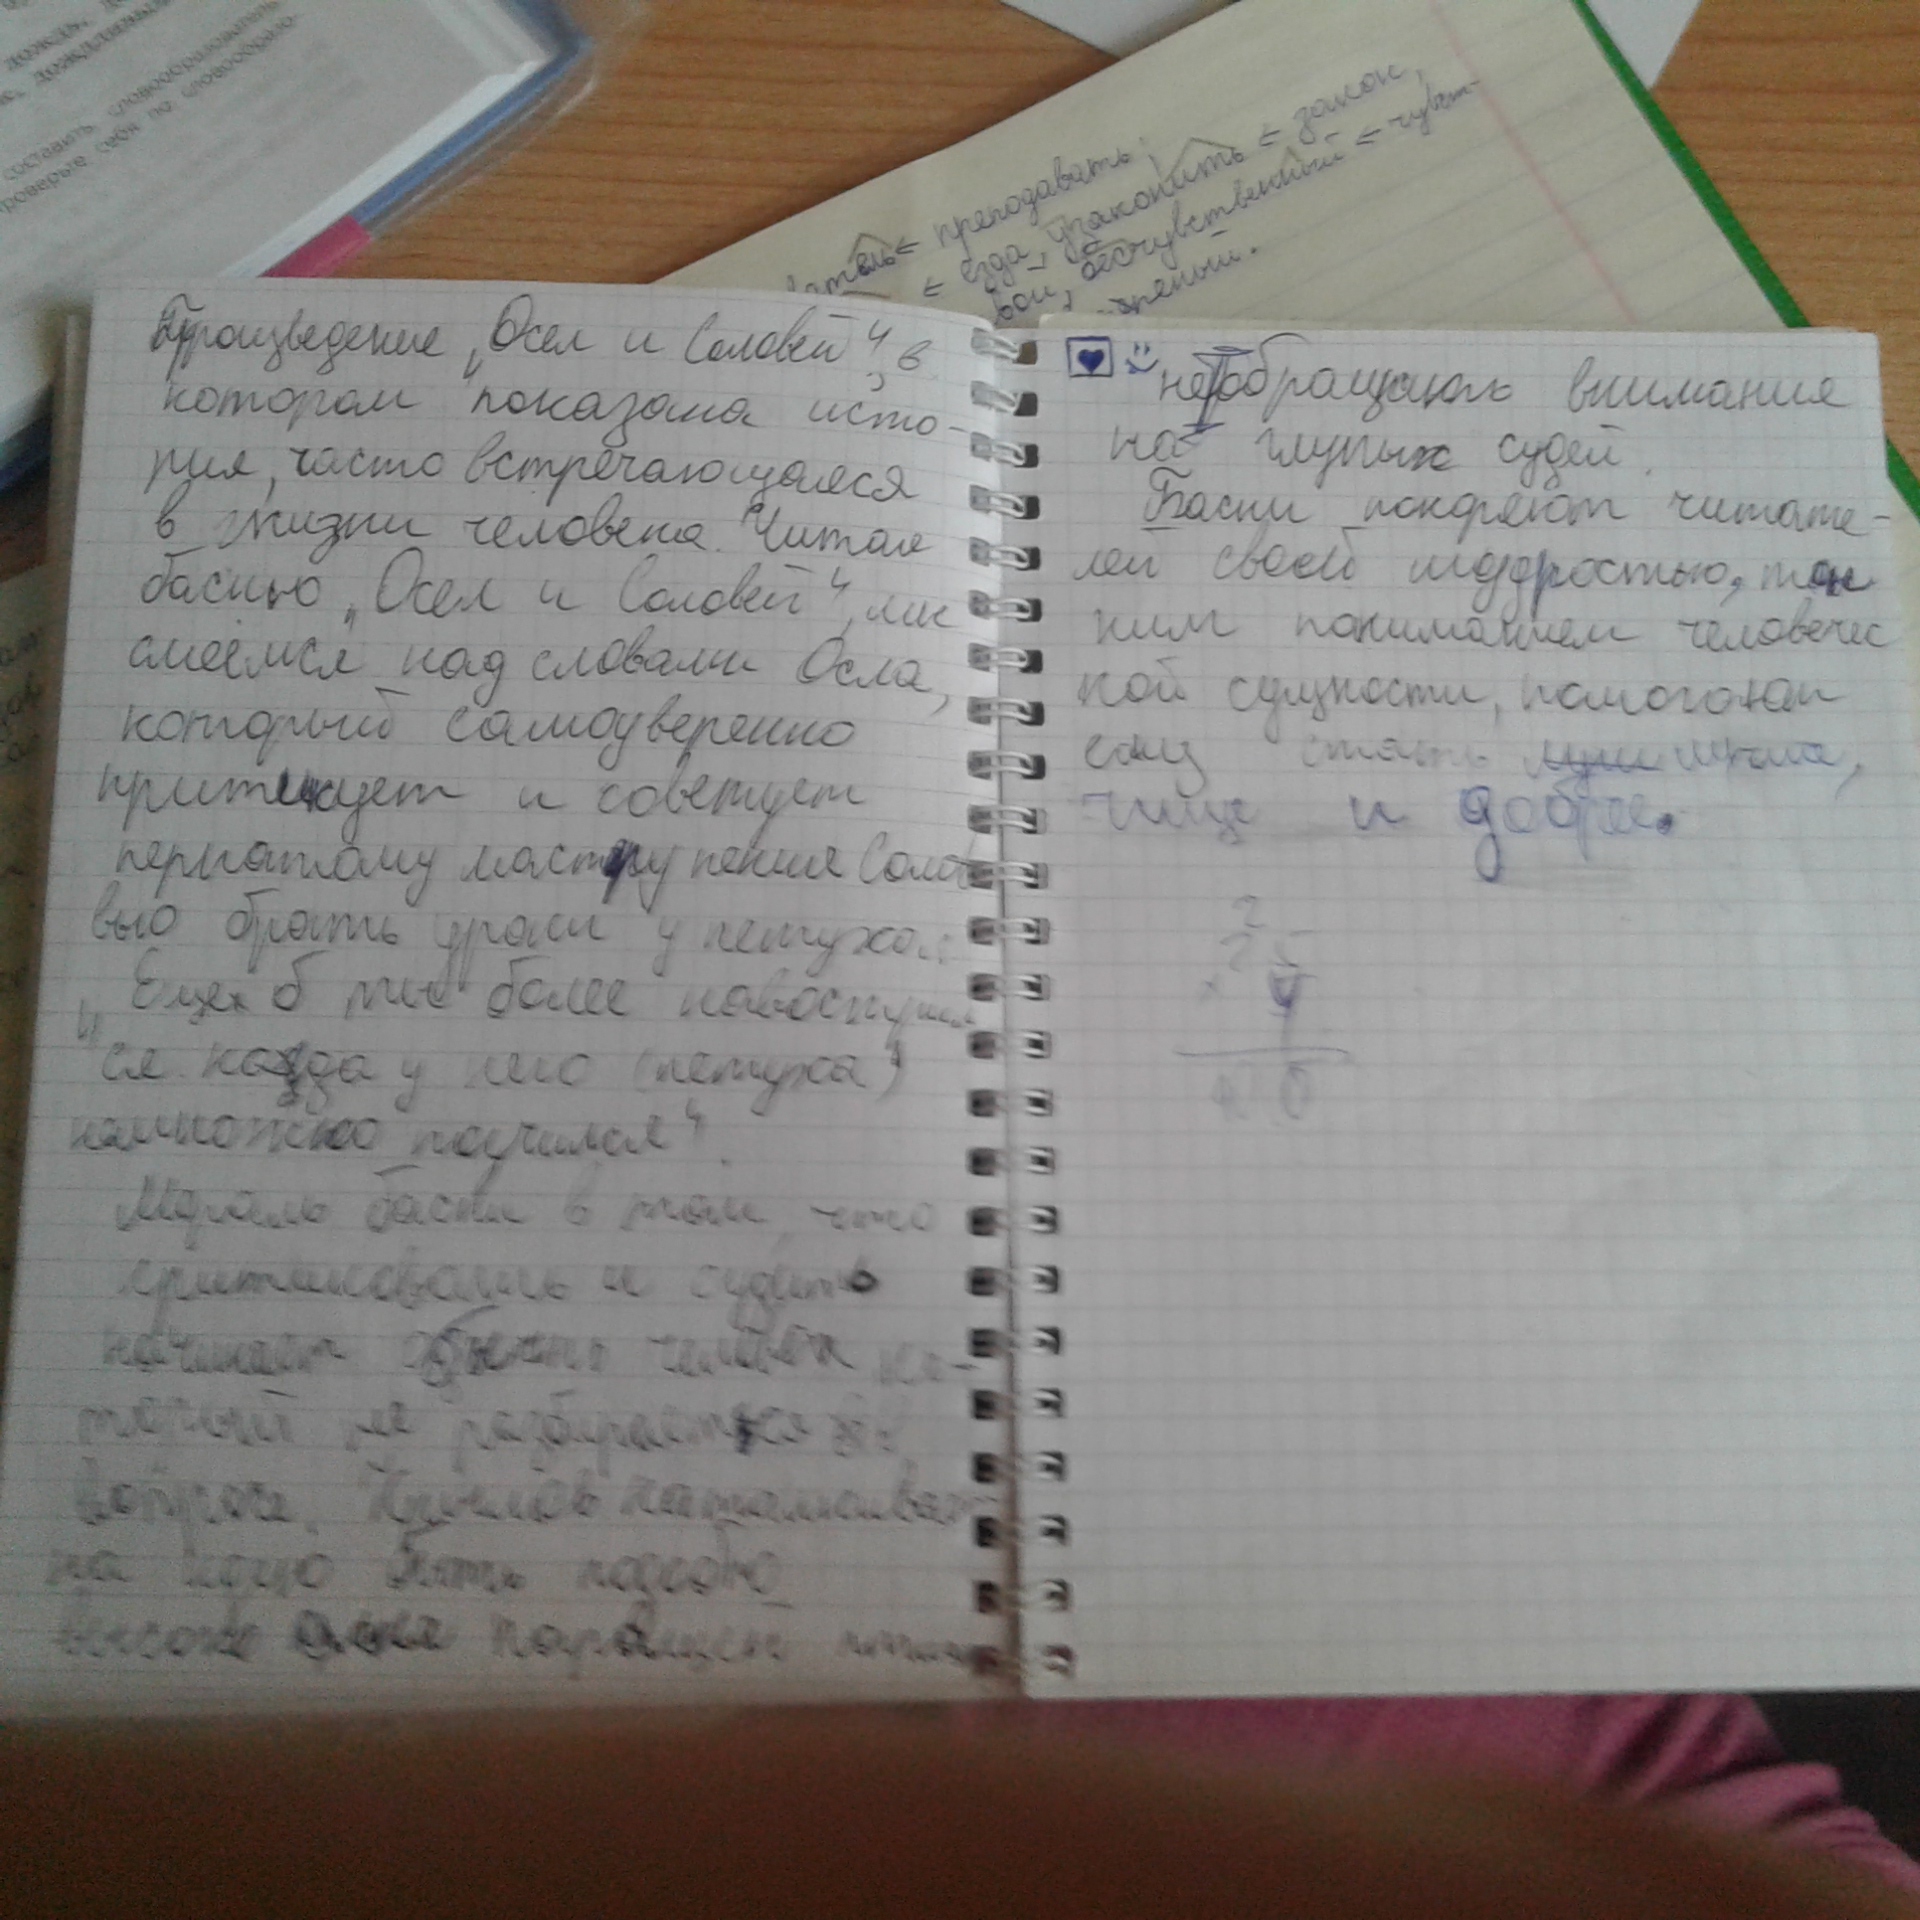 дождь,
дождливый
составить словообразователь
роверьте себя по словообразо-
ватель ⇐ преподавать;
⇐ езда, узаконить ⇐ закон,
вой, бесчувственный ⇐ чувст-
Произведение „Осел и Соловей", в
котором показана исто-
рия, часто встречающаяся
в жизни человека. Читая
басню „Осел и Соловей", мы
смеёмся над словами Осла,
который самоуверенно
и советует
пернатому мастеру пения Соло
вью брать уроки у петуха:
„Еще б ты более навострил
ся когда у него (петуха)
немножко поучился".
Мораль басни в том, что
критиковать и судить
начинает обычно человек ко-
торый не разбирается в
вопросе. Крылов
на
не обращать внимания
на глупых судей.
Басни покоряют читате-
лей своей мудростью, тон
ким пониманием человечес
кой сущности, помогают
ему стать
чище и добрее.
2
25
× 4